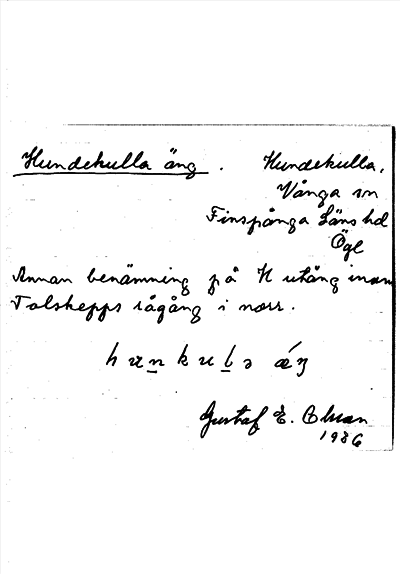 Hundekulla äng. Hundekulla,
Vånga sn
Finspånga Läns hd
Ögl
Annan benämning på H utäng inom
Tolskepps rågång i norr.
Gustaf E. Olsson
1986